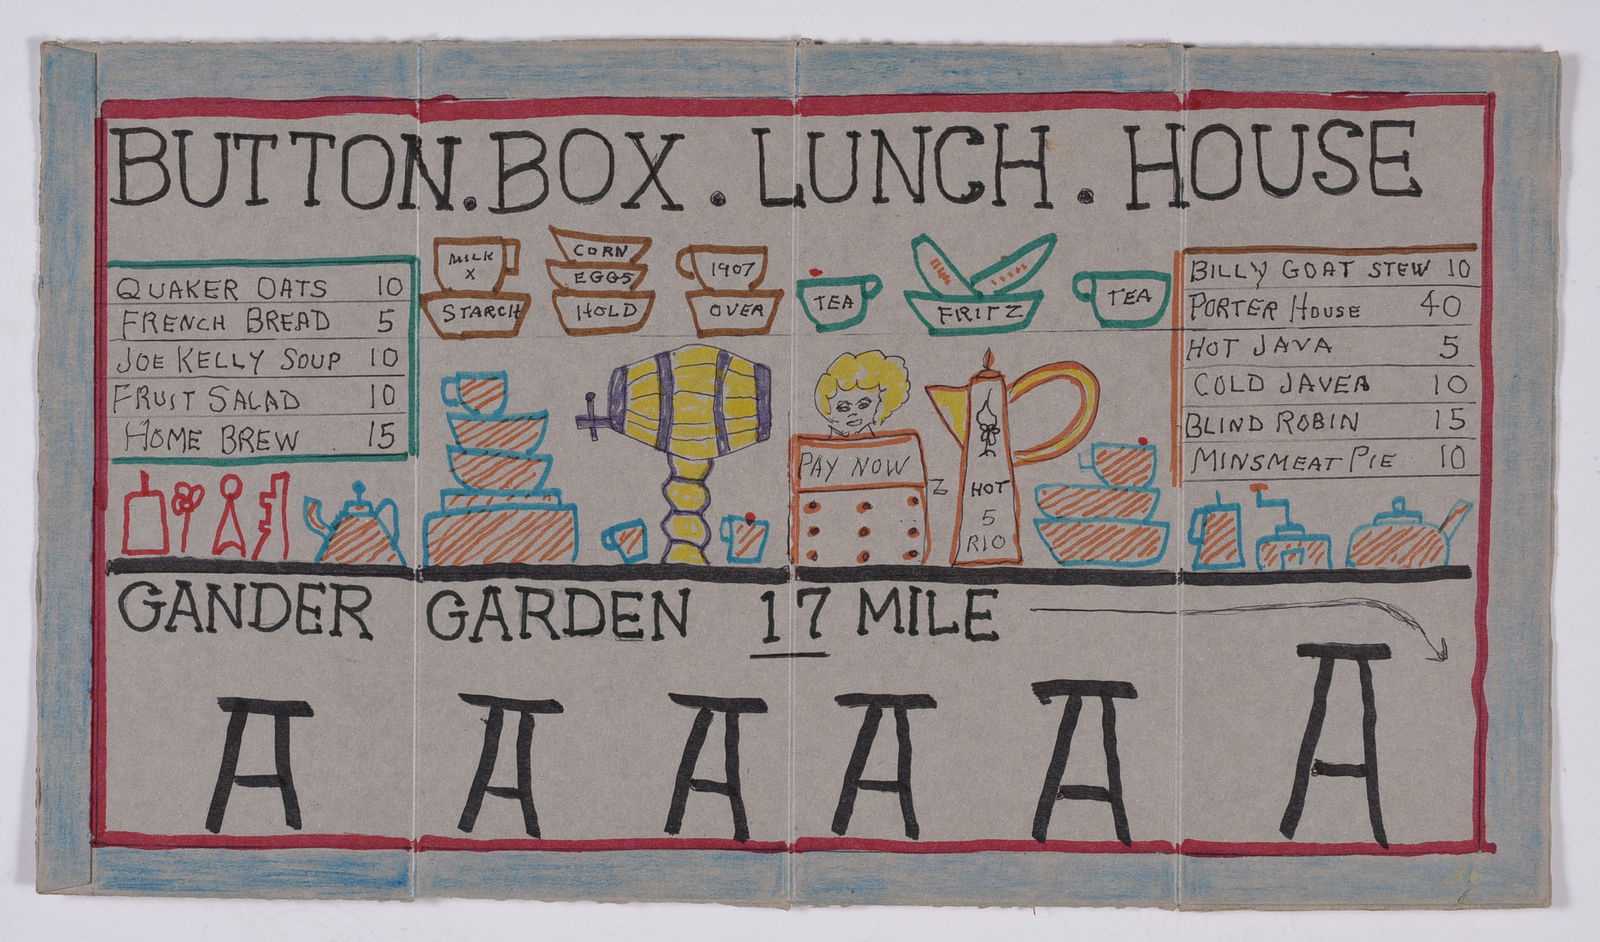 BUTTON.BOX.LUNCH.HOUSE
QUAKER OATS 10
FRENCH BREAD 5
JOE KELLY SOUP 10
FRUIT SALAD 10
HOME BREW 15
MILK
X
STARCH
CORN
EGGS
HOLD
1907
OVER
TEA
FRITZ
TEA
BILLY GOAT STEW 10
PORTER HOUSE 40
HOT JAVA 5
COLD JAVER 10
BLIND ROBIN 15
MINSMEAT PIE 10
PAY NOW
HOT
5
RIO
GANDER GARDEN 17 MILE